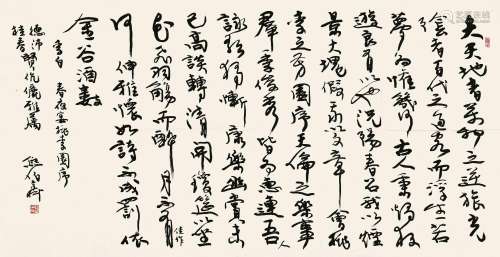 夫天地者萬物之逆旅光
陰者百代之過客而浮生若
夢為懽幾何古人秉燭夜
遊良有以也況陽春召我以煙
景大塊假我以文章會桃
李之芳園序天倫之樂事
羣季俊秀皆為惠連吾人
詠歌獨慚康樂幽賞未
已高談轉清開瓊筵以坐
花飛羽觴而醉月不有佳作
何伸雅懷如詩不成罰依
金谷酒數
李白 春夜宴桃李園序
德沛
桂春賢伉儷雅屬
熊伯齊